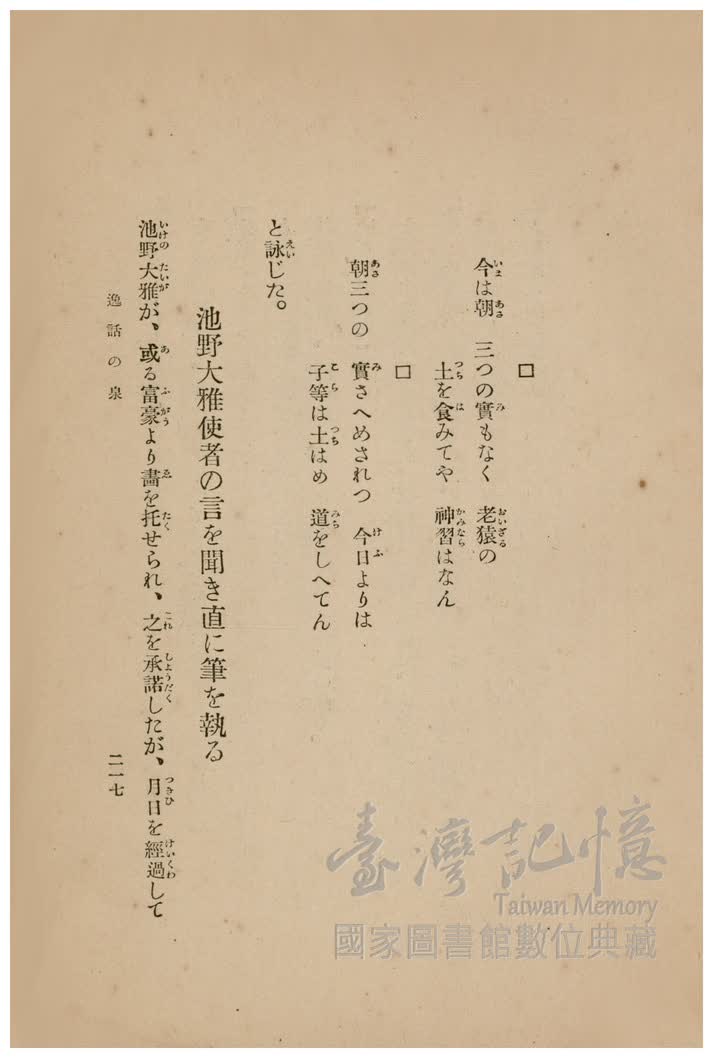 □
今は朝　三つの實もなく　老猿の
土を食みてや　神習はなん
□
朝三つの　實さへめされつ　今日よりは
子等は土はめ　道をしへてん
と詠じた。
池野大雅使者の言を聞き直に筆を執る
池野大雅が、或る富豪より畵を托せられ、之を承諾したが、月日を經過して
逸話の泉
二一七
臺灣記憶
Taiwan Memory
國家圖書館數位典藏